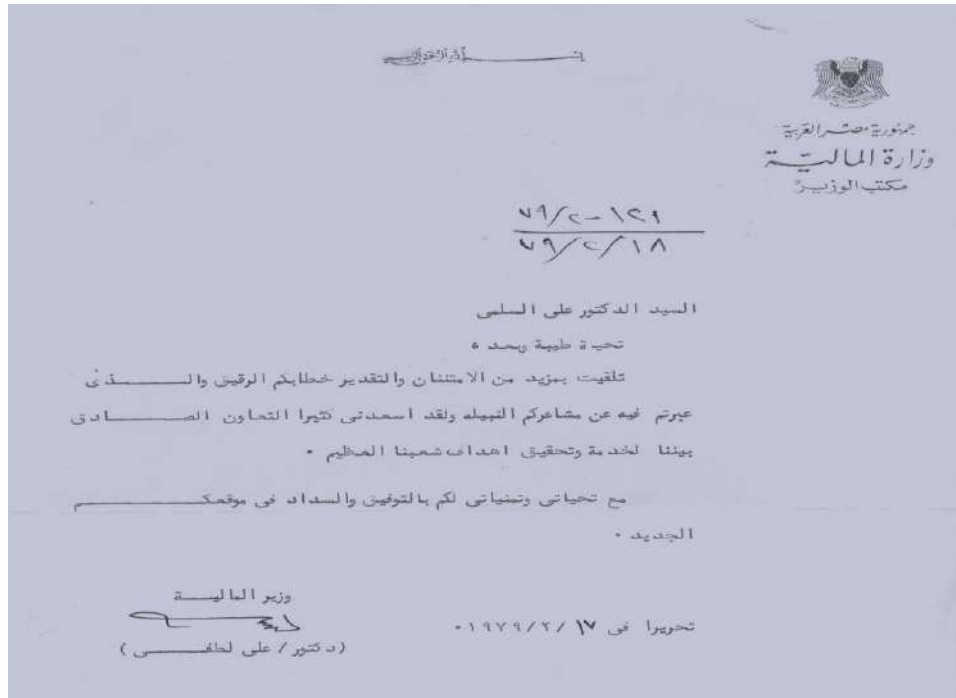 بسم الله الرحمن الرحيم
جمهورية مصر العربية
وزارة المالية
مكتب الوزير
١٢١-٧٩/٢
٧٩/٢/١٨
السيد الدكتور على السلمى
تحية طيبة وبعد ،
تلقيت بمزيد من الامتنان والتقدير خطابكم الرقيق والـــــــذى
عبرتم فيه عن مشاعركم النبيله ولقد اسعدنى كثيرا التعاون الصـــــــادق
بيننا لخدمة وتحقيق اهداف شعبنا العظيم ٠
مع تحياتى وتمنياتى لكم بالتوفيق والسداد فى موقعكـــــــــم
الجديد ٠
وزير الماليـــة
(دكتور / على لطفـــــى )
تحريرا فى ١٧ /١٩٧٩/٢٠